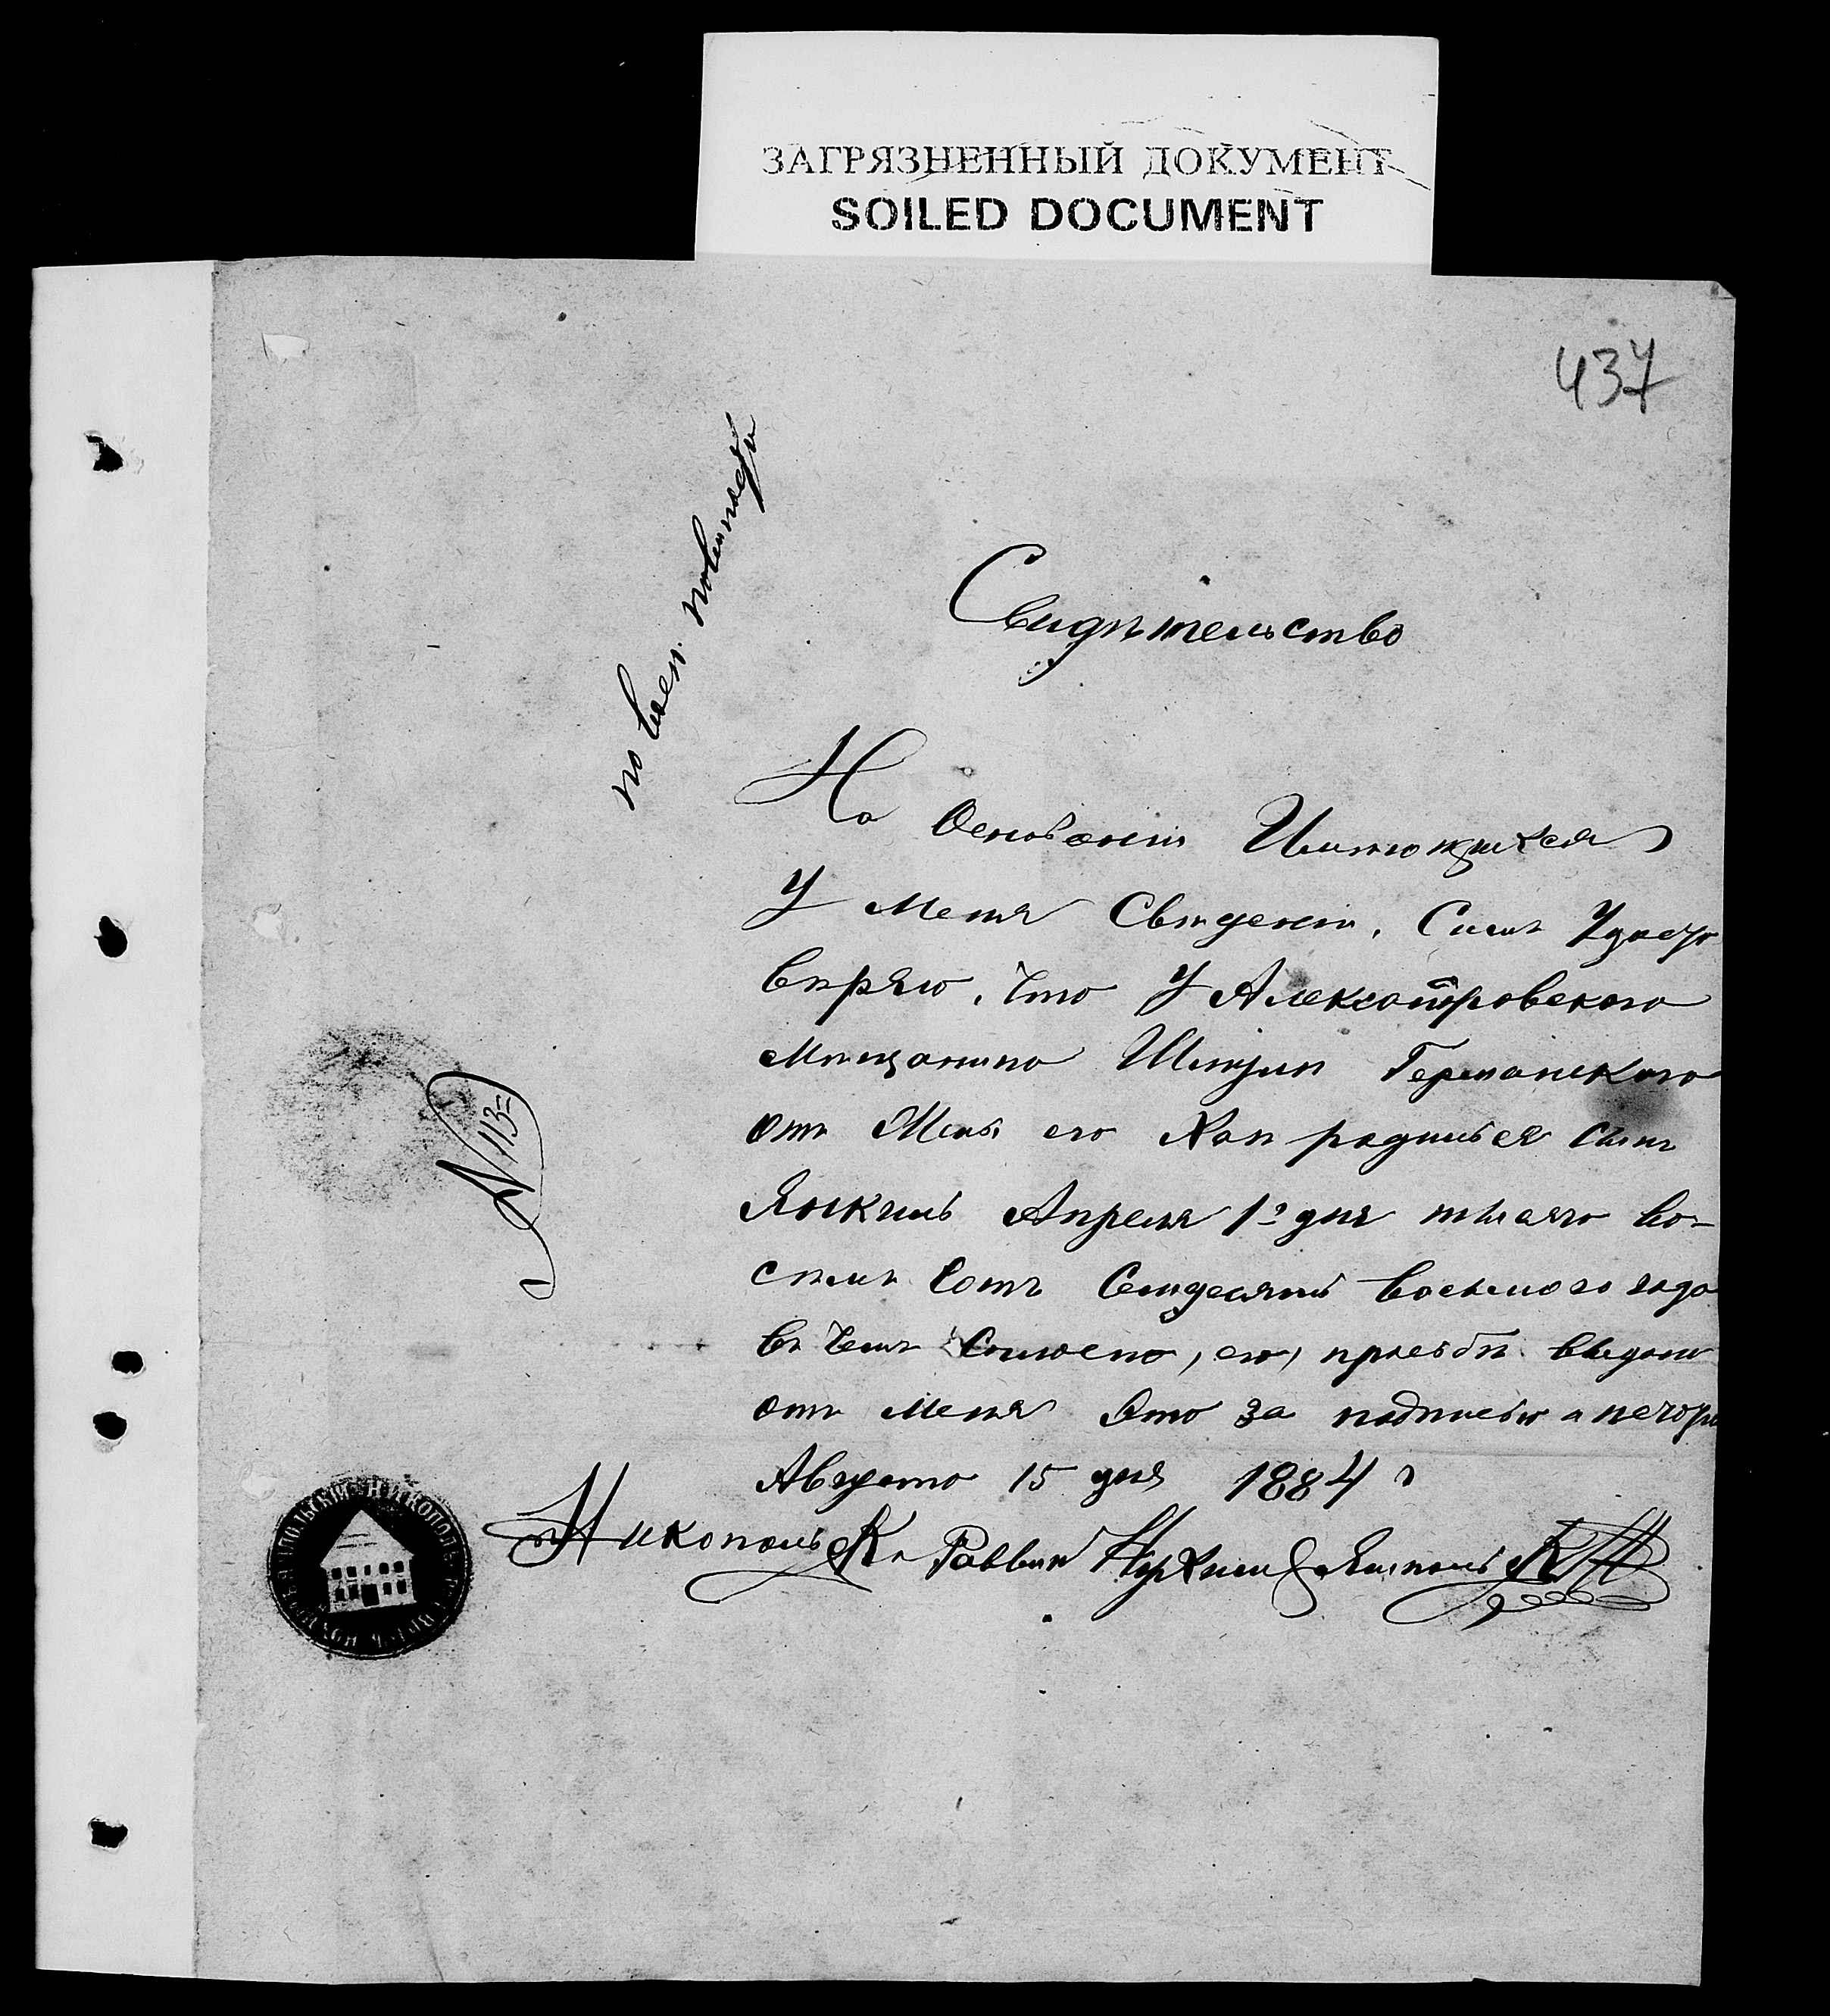 ЗАГРЯЗНЕННЫЙ ДОКУМЕНТ
SOILED DOCUMENT
437
по воен. повинности
Свидѣтельство
На Основаніи Имѣющихся
У Меня Свѣденіи, Симъ Удосто
вѣряю, что У Александровского
Мѣщанина Германского
отъ Жены его Хаи родился сынъ
Янкель Апреля 1го дня тысяча во-
семь сотъ Семдесятъ восьмого года
въ чемъ согласно, его, просьбы выдано
отъ Меня это за подписью и печатью
Августа 15 дня 1884 г
N 113
Никополь Раввин